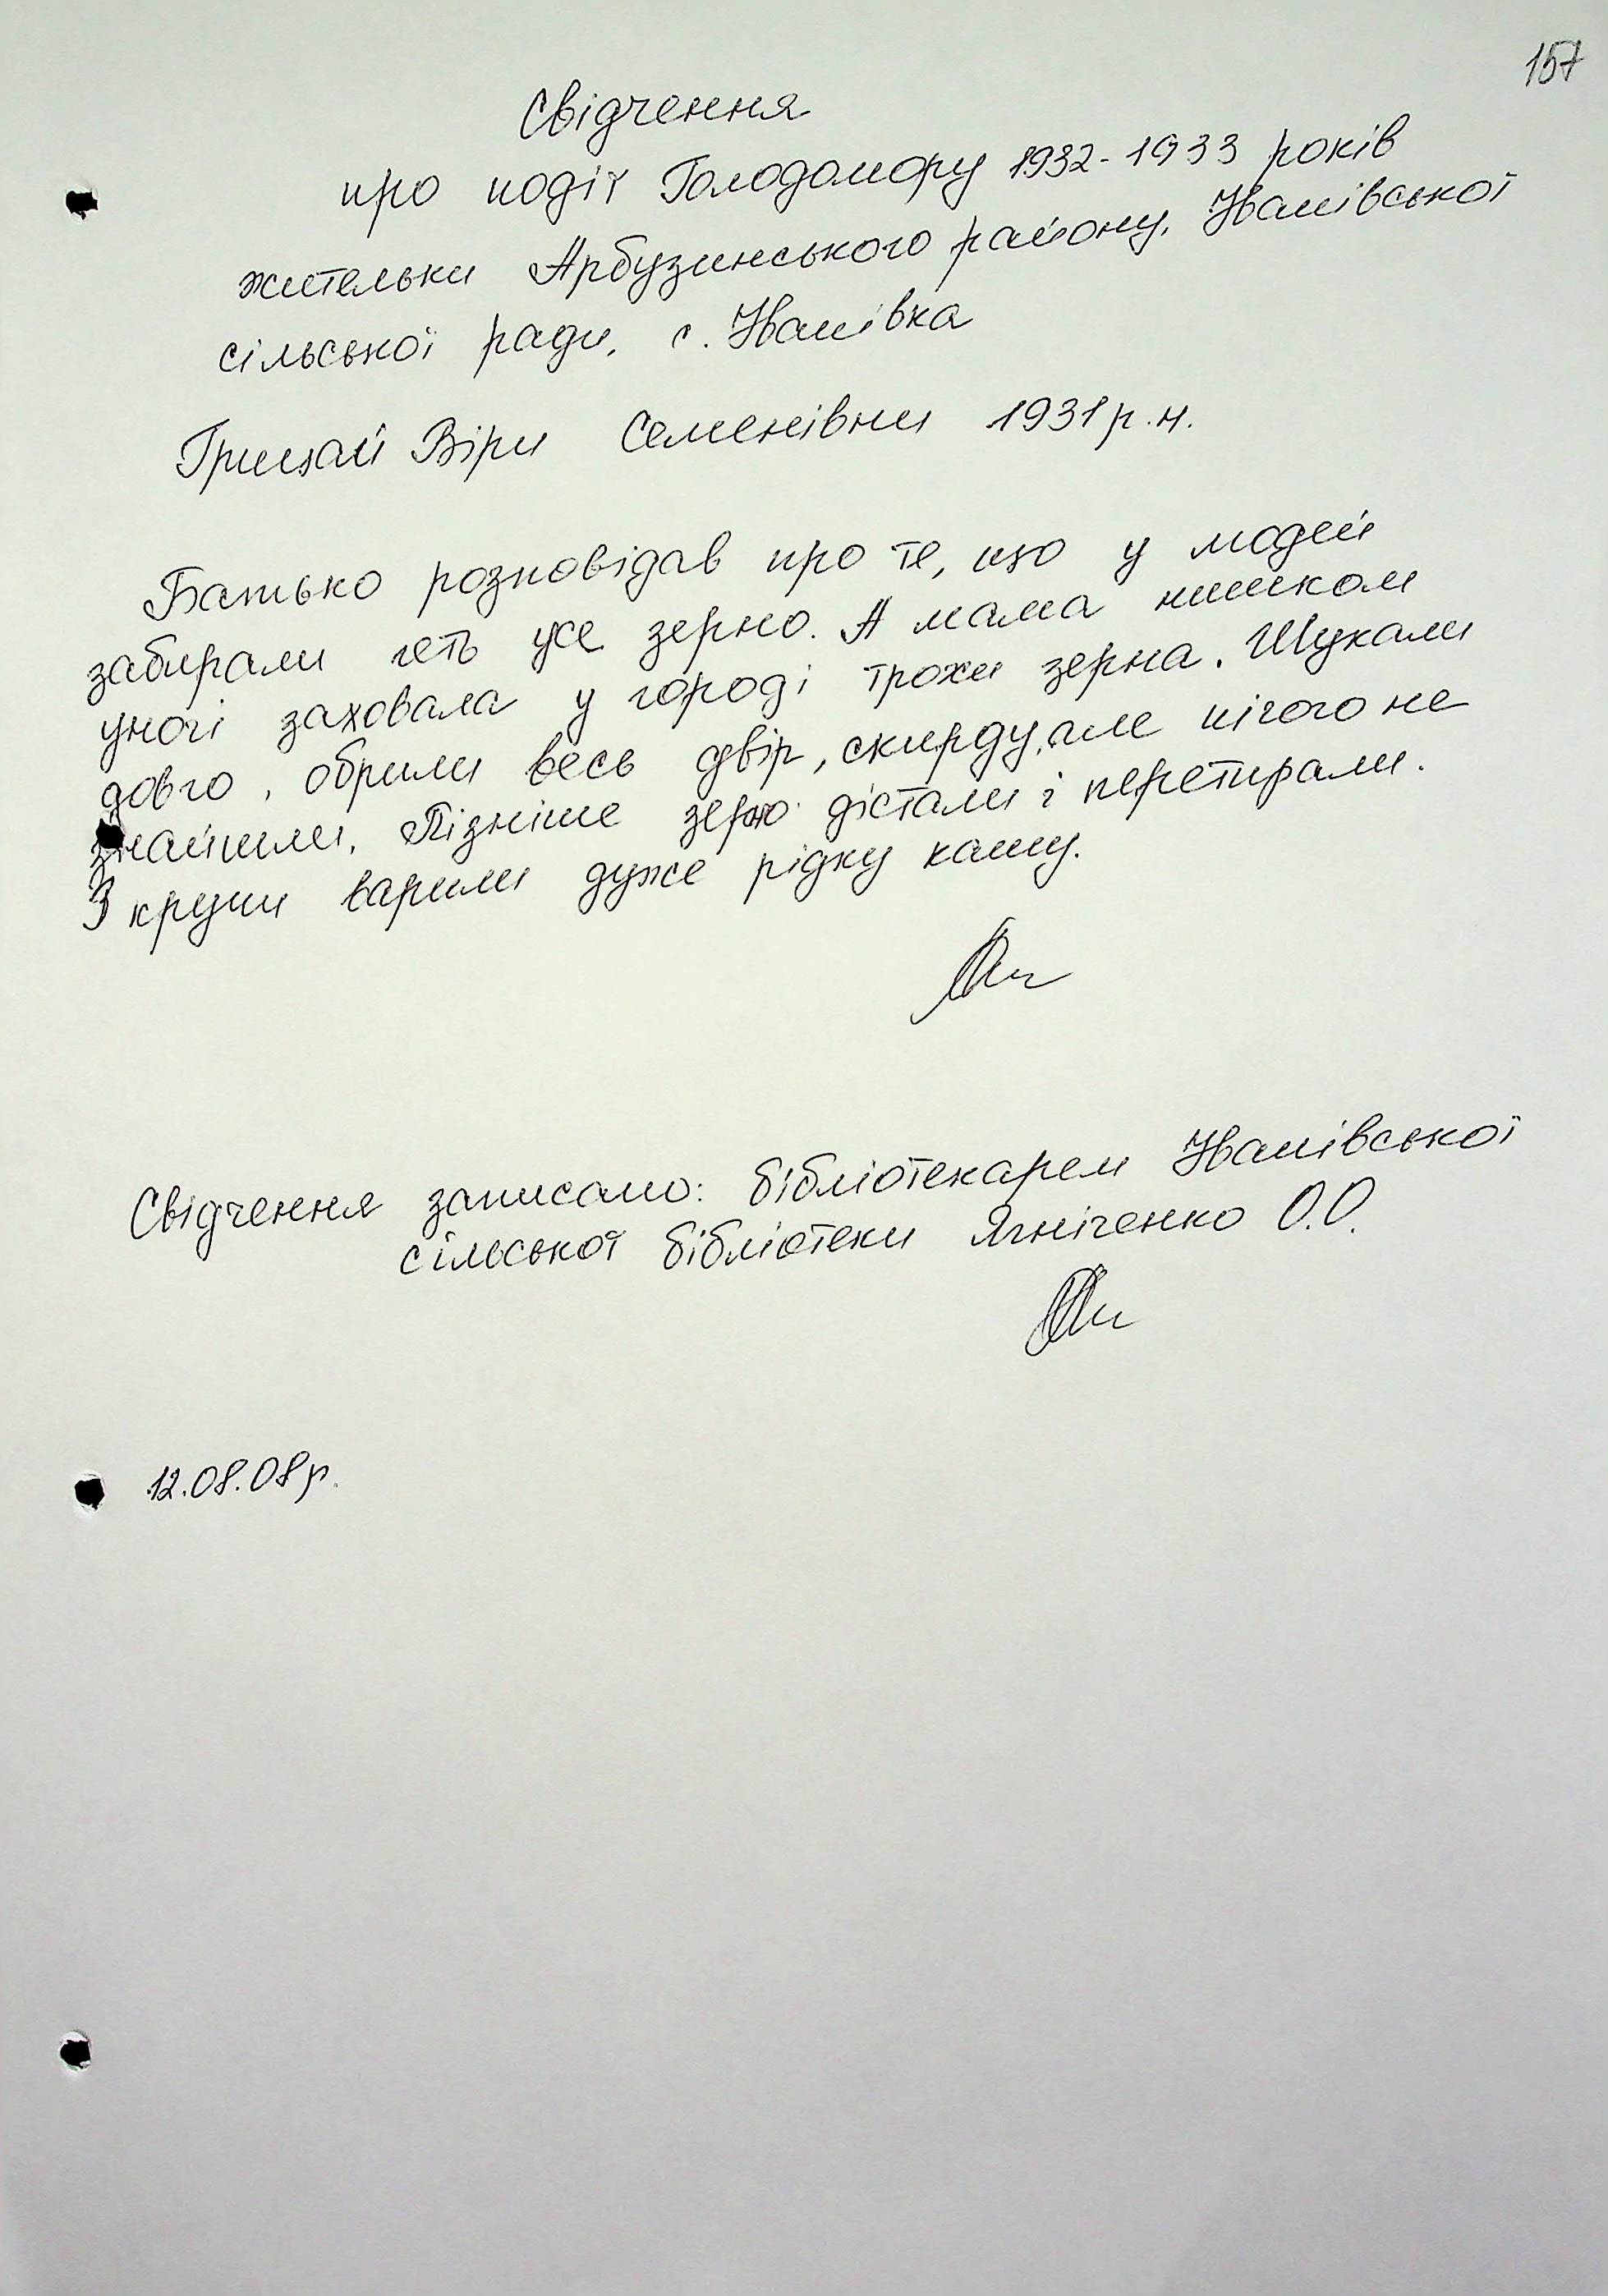 157
Свідчення
про події Голодомору 1932-1933 років
жительки Арбузинського району, Іванівської
сільської ради, с. Іванівка
Грицай Віри Семенівни 1931 р.н.
Батько розповідав про те, що у людей
забирали геть усе зерно. А мама нишком
уночі заховала у городі трохи зерна. Шукали
довго, обрили весь двір, скирду, але нічого не
знайшли. Пізніше зерно дістали і перетирали.
З крупи варили дуже рідку кашу.
Свідчення записано: бібліотекарем Іванівської
сільської бібліотеки Ягніченко О.О.
12.08.08р.